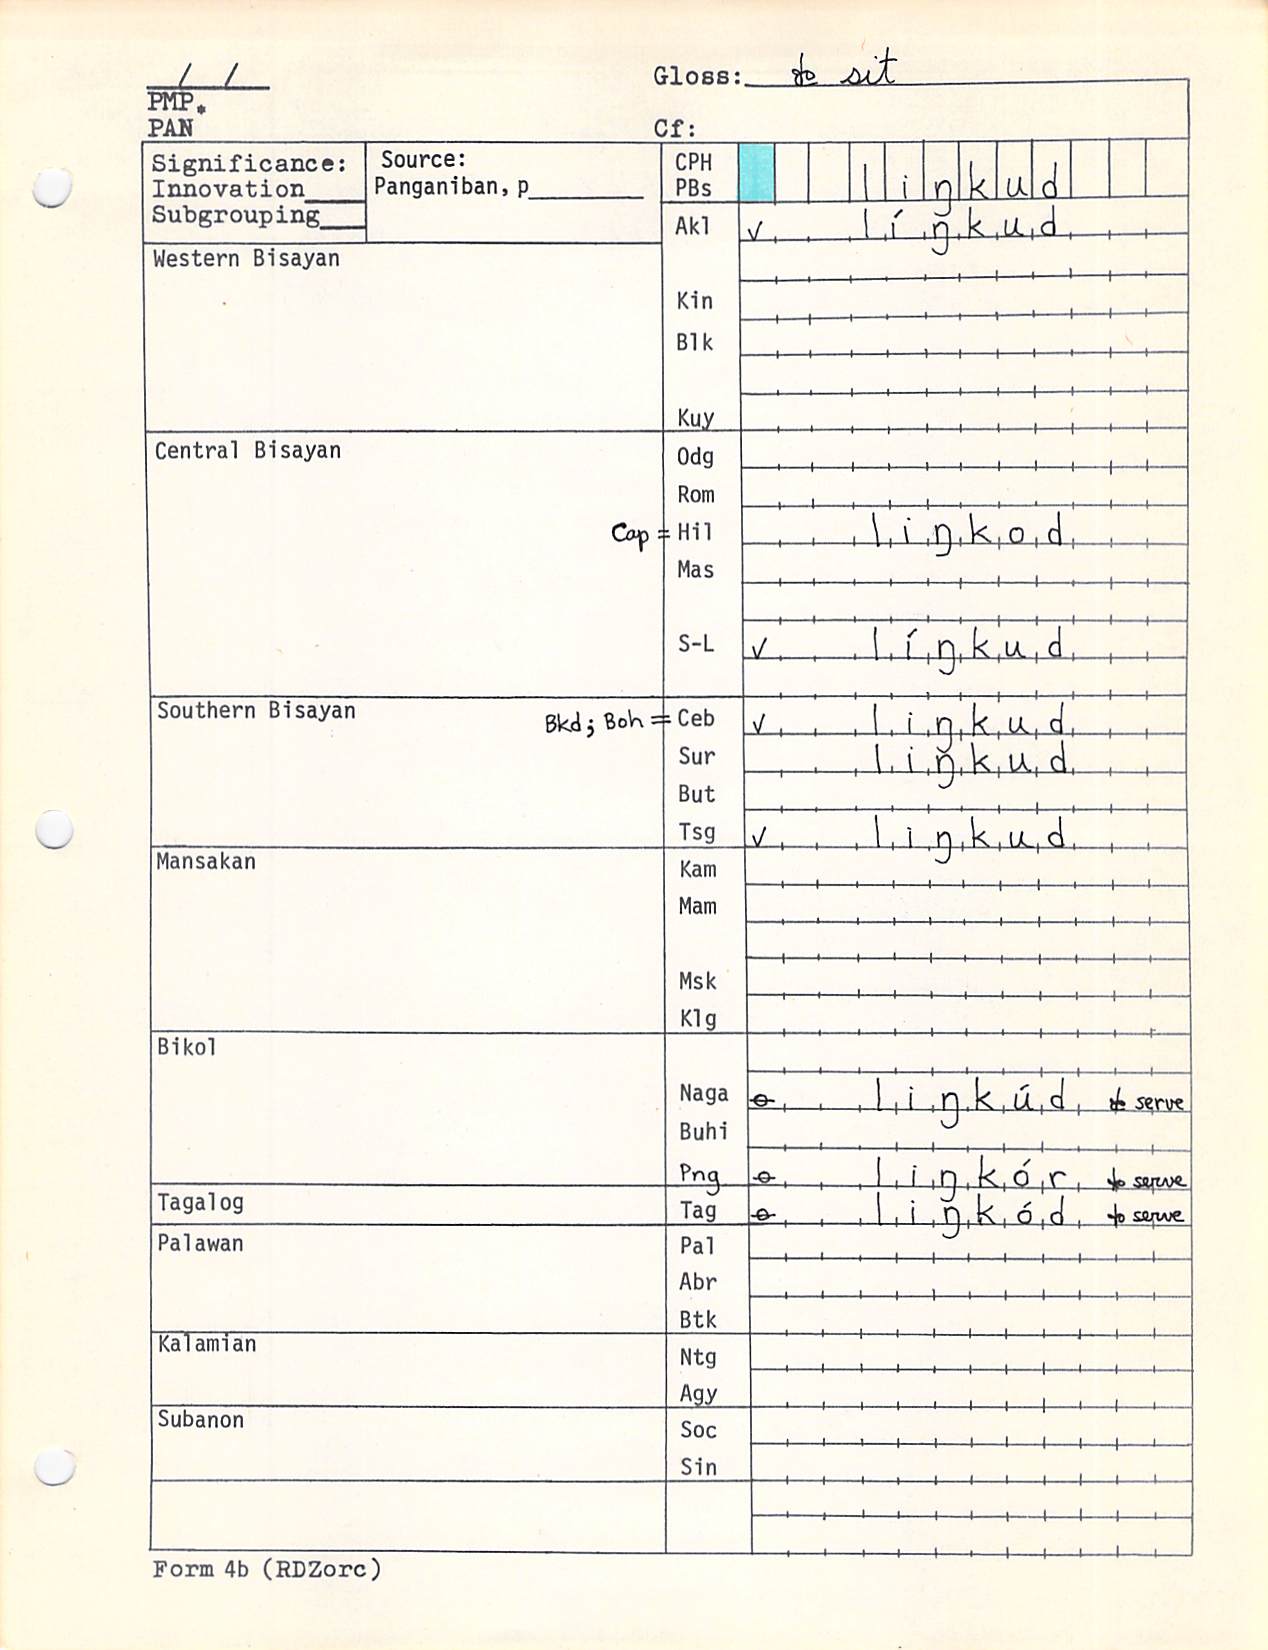 / / Gloss: to sit
PMP*
PAN Cf:
Significance: Source: CPH
Innovation___ Panganiban, p________ PBs liŋkud
Subgrouping___
Akl ✓ líŋkud
Western Bisayan
Kin
Blk
Kuy
Central Bisayan Odg
Rom
Cap = Hil liŋkod
Mas
S-L ✓ líŋkud
Southern Bisayan Bkd; Boh = Ceb ✓ liŋkud
Sur liŋkud
But
Tsg ✓ liŋkud
Mansakan Kam
Mam
Msk
Klg
Bikol
Naga ɵ liŋkúd to serve
Buhi
Png ɵ liŋkór to serve
Tagalog Tag ɵ liŋkód to serve
Palawan Pal
Abr
Btk
Kalamian Ntg
Agy
Subanon Soc
Sin
Form 4b (RDZorc)